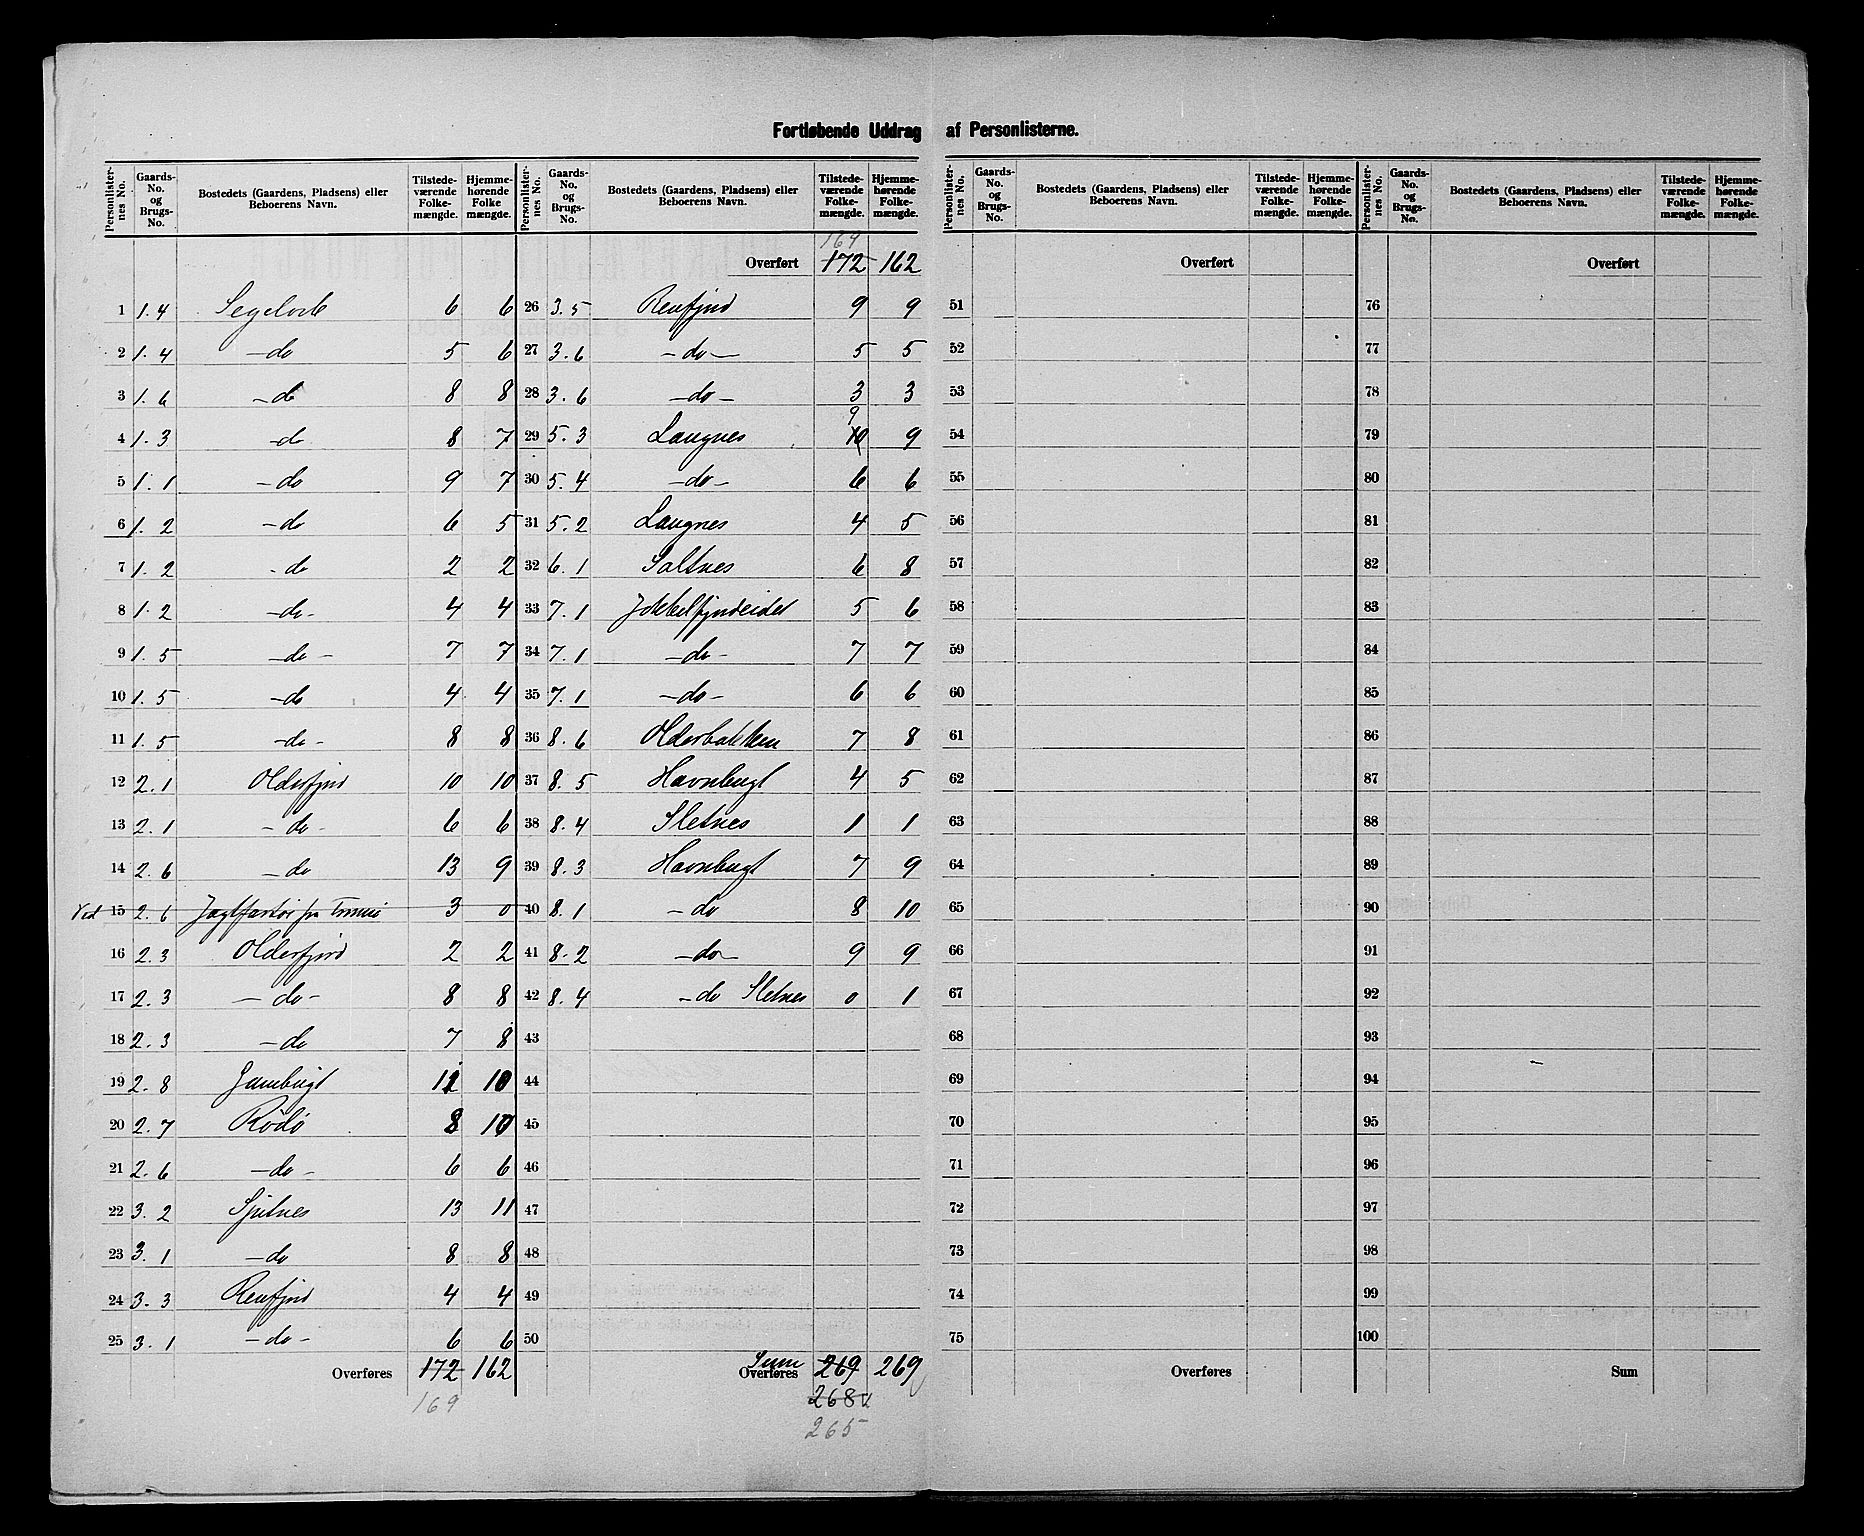 Fortløbende Uddrag af Personlisterne.
Personlisternes No. Gaards-No. og Brugs-No. Bostedets (Gaardens, Pladsens) eller Beboerens Navn. Tilstedeværende Folkemængde. Hjemmehørende Folkemængde.
1 1.4 Segelvik 6 6
2 1.4 -do 5 6
3 1.6 -do 8 8
4 1.3 -do 8 7
5 1.1 -do 9 7
6 1.2 -do 6 5
7 1.2 -do 2 2
8 1.2 -do- 4 4
9 1.5 -do- 7 7
10 1.5 -do 4 4
11 1.5 -do- 8 8
12 2.1 Olderfjord 10 10
13 2.1 -do- 6 6
14 2.6 -do 13 9
Ved 15 2.6 Jagtfartøi fra Tromsø 3 0
16 2.3 Olderfjord 2 2
17 2.3 -do- 8 8
18 2.3 -do 7 8
19 2.8 10
20 2.7 Rødø 8 10
21 2.6 -do- 6 6
22 3.2 13 11
23 3.1 -do 8 8
24 3.3 Reinfjord 4 4
25 3.1 -do- 6 6
Overføres 172 162
169
Personlisternes No. Gaards-No. og Brugs-No. Bostedets (Gaardens, Pladsens) eller Beboerens Navn. Tilstedeværende Folkemængde. Hjemmehørende Folkemængde.
169
Overført 172 162
26 3.5 Reinfjord 9 9
27 3.6 -do- 5 5
28 3.6 -do- 3 3
9
29 5.3 Laugnes 10 9
30 5.4 -do- 6 6
31 5.2 Laugnes 4 5
32 6.1 Saltnes 6 8
33 7.1 Jøkkelfjordeidet 5 6
34 7.1 -do- 7 7
35 7.1 -do- 6 6
36 8.6 Olderbakken 7 8
37 8.5 Havnbugt 4 5
38 8.4 Sletnes 1 1
39 8.3 Havnbugt 7 9
40 8.1 -do 8 10
41 8.2 -do- 9 9
42 8.4 -do Sletnes 0 1
43
44
45
46
47
48
49
50
Sum
Overføres 269 269
268
265
Personlisternes No. Gaards-No. og Brugs-No. Bostedets (Gaardens, Pladsens) eller Beboerens Navn. Tilstedeværende Folkemængde. Hjemmehørende Folkemængde.
Overført
51
52
53
54
55
56
57
58
59
60
61
62
63
64
65
66
67
68
69
70
71
72
73
74
75
Overføres
Personlisternes No. Gaards-No. og Brugs-No. Bostedets (Gaardens, Pladsens) eller Beboerens Navn. Tilstedeværende Folkemængde. Hjemmehørende Folkemængde.
Overført
76
77
78
79
80
81
82
83
84
85
86
87
88
89
90
91
92
93
94
95
96
97
98
99
100
Sum